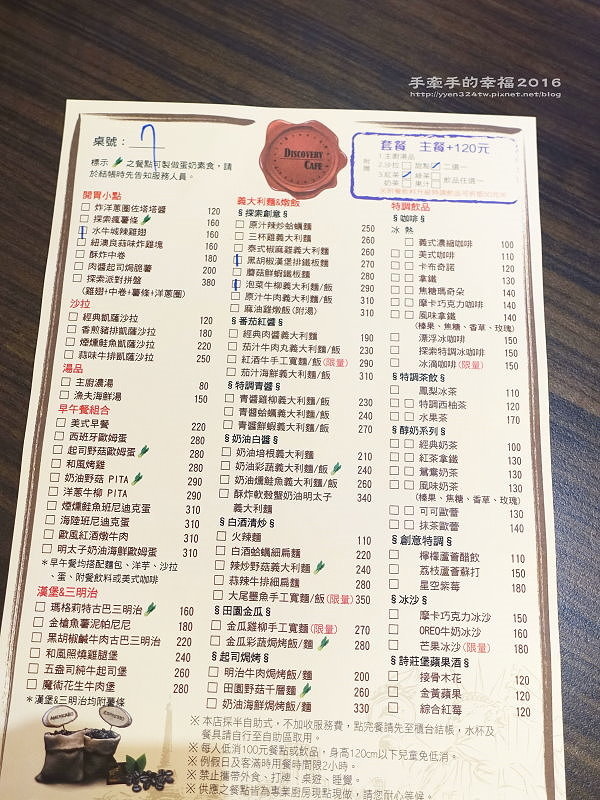 手牽手的幸福2016
http://yyen324tw.pixnet.net/blog
桌號：7
標示 之餐點可製做蛋奶素食，請
於結帳時先告知服務人員。
DISCOVERY
CAFE
套餐 主餐+120元
附贈
1.主廚湯品
2.沙拉 甜點 二選一
3.紅茶 綠茶
奶茶 果汁 飲品任選一
開胃小點
炸洋蔥圈佐塔塔醬 120
探索瘋薯條 160
水牛城辣雞翅 160
紐澳良蒜味炸雞塊 160
酥炸中卷 180
肉醬起司焗脆薯 200
探索派對拼盤 380
(雞翅+中卷+薯條+洋蔥圈)
沙拉
經典凱薩沙拉 120
香煎豬排凱薩沙拉 180
煙燻鮭魚凱薩沙拉 220
蒜味牛排凱薩沙拉 250
湯品
主廚濃湯 80
漁夫海鮮湯 150
早午餐組合
美式早餐 220
西班牙歐姆蛋 280
起司野菇歐姆蛋 280
和風烤雞 280
奶油野菇 PITA 290
洋蔥牛柳 PITA 290
煙燻鮭魚班尼迪克蛋 310
海陸班尼迪克蛋 310
歐風紅酒燉牛肉 310
明太子奶油海鮮歐姆蛋 310
＊早午餐均搭配麵包、洋芋、沙拉
、蛋、附餐飲料或美式咖啡
漢堡&三明治
瑪格莉特古巴三明治 160
金槍魚薯泥帕尼尼 180
黑胡椒鹹牛肉古巴三明治 220
和風照燒雞腿堡 240
五盎司純牛起司堡 260
魔術花生牛肉堡 280
＊漢堡&三明治均附薯條
義大利麵&燉飯
§探索創意§
原汁辣炒蛤蠣麵 250
三杯雞義大利麵 260
泰式椒麻雞義大利麵 260
黑胡椒漢堡排鐵板麵 270
蘑菇鮮蝦鐵板麵 280
泡菜牛柳義大利麵/飯 290
原汁牛肉義大利麵 310
麻油雞燉飯(附湯) 310
§番茄紅醬§
經典肉醬義大利麵 190
茄汁牛肉丸義大利麵/飯 230
紅酒牛手工寬麵/飯(限量) 290
茄汁海鮮義大利麵/飯 310
§特調青醬§
青醬雞柳義大利麵/飯 230
青醬蛤蠣義大利麵/飯 240
青醬鮮蝦義大利麵/飯 270
§奶油白醬§
奶油培根義大利麵 210
奶油彩蔬義大利麵/飯 240
奶油燻鮭魚義大利麵/飯 260
酥炸軟殼蟹奶油明太子 340
義大利麵
§白酒清炒§
火辣麵 110
白酒蛤蠣細扁麵 220
辣炒野菇義大利麵 240
蒜辣牛排細扁麵 280
大尾墨魚手工寬麵/飯(限量) 350
§田園金瓜§
金瓜雞柳手工寬麵(限量) 270
金瓜彩蔬焗烤飯/麵 280
§起司焗烤§
明治牛肉焗烤飯/麵 200
田園野菇千層麵 260
奶油海鮮焗烤飯/麵 330
特調飲品
§咖啡§
冰 熱
義式濃縮咖啡 100
美式咖啡 110
卡布奇諾 120
拿鐵 130
焦糖瑪奇朵 140
摩卡巧克力咖啡 140
風味拿鐵 140
(榛果、焦糖、香草、玫瑰)
漂浮冰咖啡 150
探索特調冰咖啡 150
冰滴咖啡(限量) 150
§特調茶飲§
鳳梨冰茶 110
特調西柚茶 120
水果茶 170
§醇奶系列§
經典奶茶 100
紅茶拿鐵 130
鴛鴦奶茶 130
風味奶茶 130
(榛果、焦糖、香草、玫瑰)
可可歐蕾 130
抹茶歐蕾 140
§創意特調§
檸檬蘆薈醋飲 110
荔枝蘆薈蘇打 150
星空紫莓 180
§冰沙§
摩卡巧克力冰沙 150
OREO牛奶冰沙 160
芒果冰沙(限量) 180
§詩莊堡蘋果酒§
接骨木花 120
金黃蘋果 120
綜合紅莓 120
※本店採半自助式，不加收服務費，點完餐請先至櫃台結帳，水杯及
餐具請自行至自助區取用。
※每人低消100元餐點或飲品，身高120cm以下兒童免低消。
※例假日及客滿時用餐時間限2小時。
※禁止攜帶外食、打牌、桌遊、睡覺。
※供應之餐點皆為專業廚房現點現做，請您耐心等候。
ESPRESSO